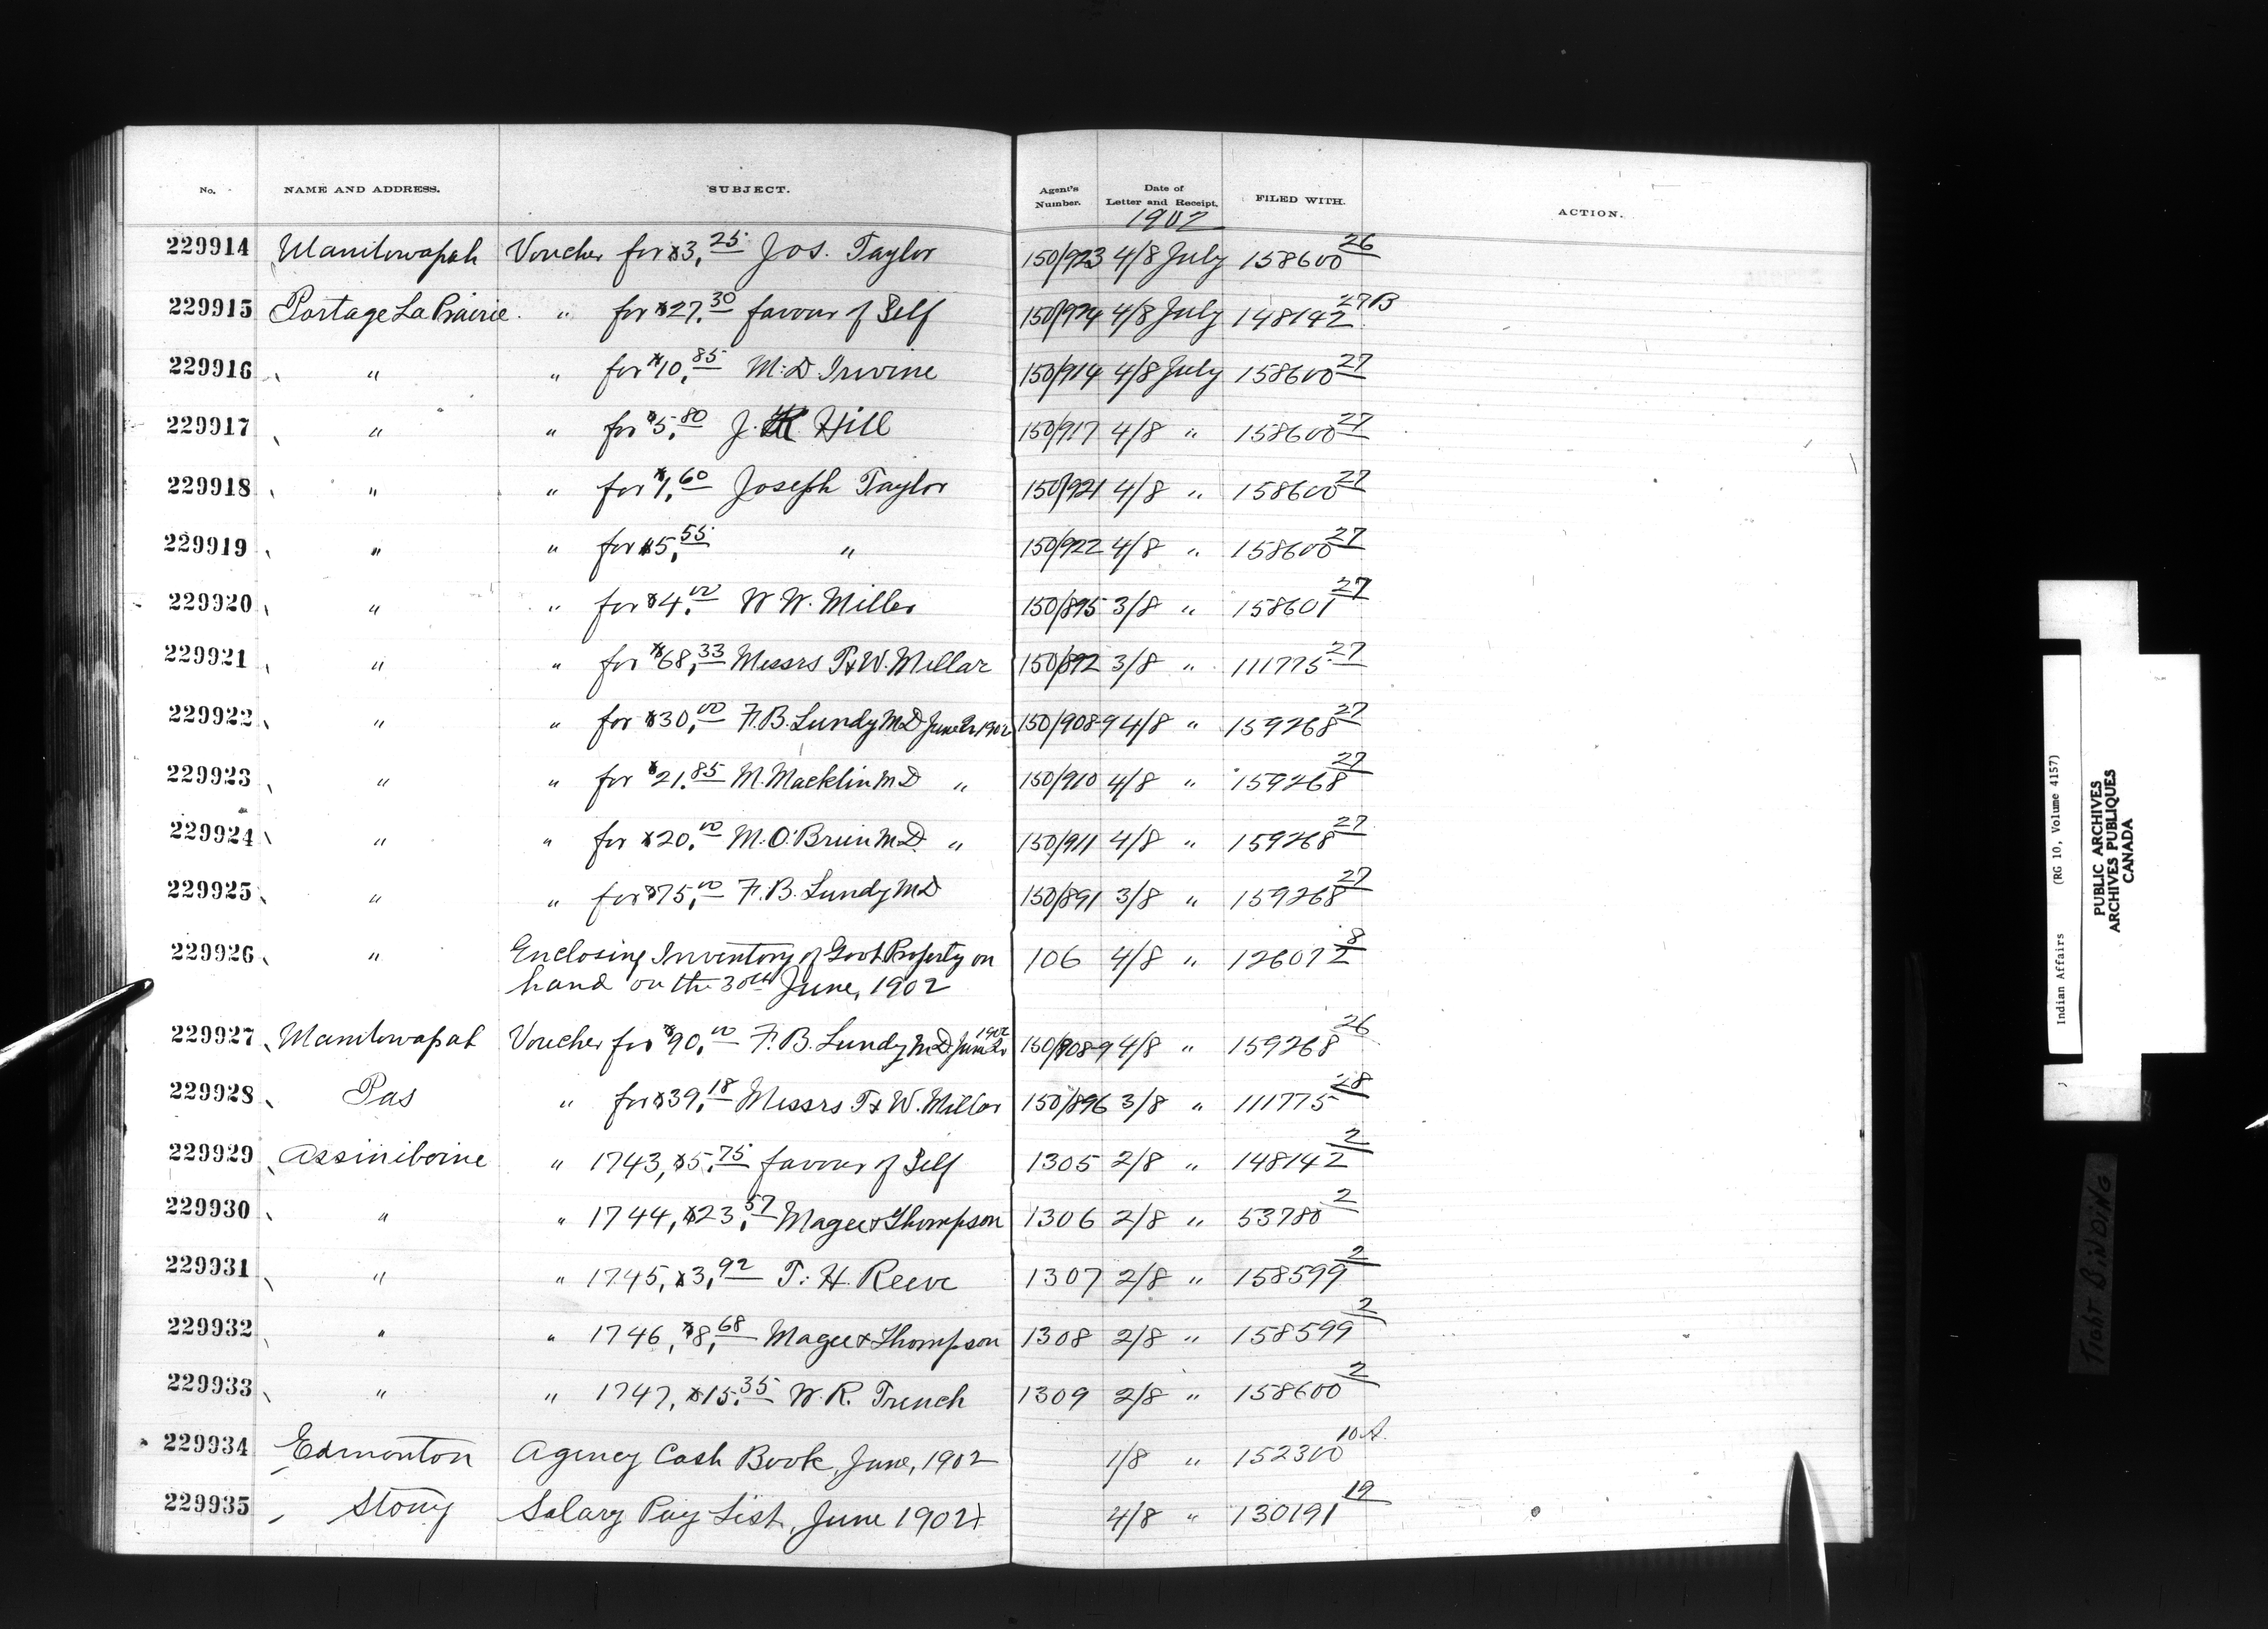 No. NAME AND ADDRESS. SUBJECT. Agent's Number. Date of Letter and Receipt. FILED WITH. ACTION.
1902
229914 Manitowapah Voucher for $3.25 Jos. Taylor 150/923 4/8 July 158600 26
229915 Portage La Prairie " for $27.30 favour of Self 150/924 4/8 July 148142 27B
229916 " " for $10.85 M. D. Irwine 150/914 4/8 July 158600 27
229917 " " for $5.80 J. Hill 150/917 4/8 " 158600 27
229918 " " for $1.60 Joseph Taylor 150/921 4/8 " 158600 27
229919 " " for $5.55 " 150/922 4/8 " 158600 27
229920 " " for $4.00 W W. Miller 150/895 3/8 " 158601 27
229921 " " for $68.33 Messrs T & W. Millar 150/892 3/8 " 111775 27
229922 " " for $30.00 F. B. Lundy M D June 1902 150/908-9 4/8 " 159268 27
229923 " " for $21.85 M. Macklin M D " 150/910 4/8 " 159268 27
229924 " " for $20.00 M. O'Brien M D. " 150/911 4/8 " 159268 27
229925 " " for $75.00 F. B. Lundy M D 150/891 3/8 " 159268 27
229926 " Enclosing Inventory of Govt Property on 106 4/8 " 126072 8
hand on the 30th June, 1902
229927 Manitowapah Voucher for $90.00 F. B. Lundy M D. June 1902 150/908-9 4/8 " 159268 26
229928 Pas " for $39.18 Messrs T & W. Millar 150/896 3/8 " 111775 28
229929 Assiniboine " 1743, $5.75 favour of Self 1305 2/8 " 148142 2
229930 " " 1744, $23.57 Magee & Thompson 1306 2/8 " 53780 2
229931 " " 1745, $3.92 T. H. Reeve 1307 2/8 " 158599 2
229932 " " 1746, $8.68 Magee & Thompson 1308 2/8 " 158599 2
229933 " " 1747, $15.35 W. R. Trench 1309 2/8 " 158600 2
229934 Edmonton Agency Cash Book, June, 1902 1/8 " 152300 10A.
229935 Stony Salary Pay List, June 1902 4/8 " 130191 19
Indian Affairs (RG 10, Volume 4157)
PUBLIC ARCHIVES
ARCHIVES PUBLIQUES
CANADA
TIGHT BINDING